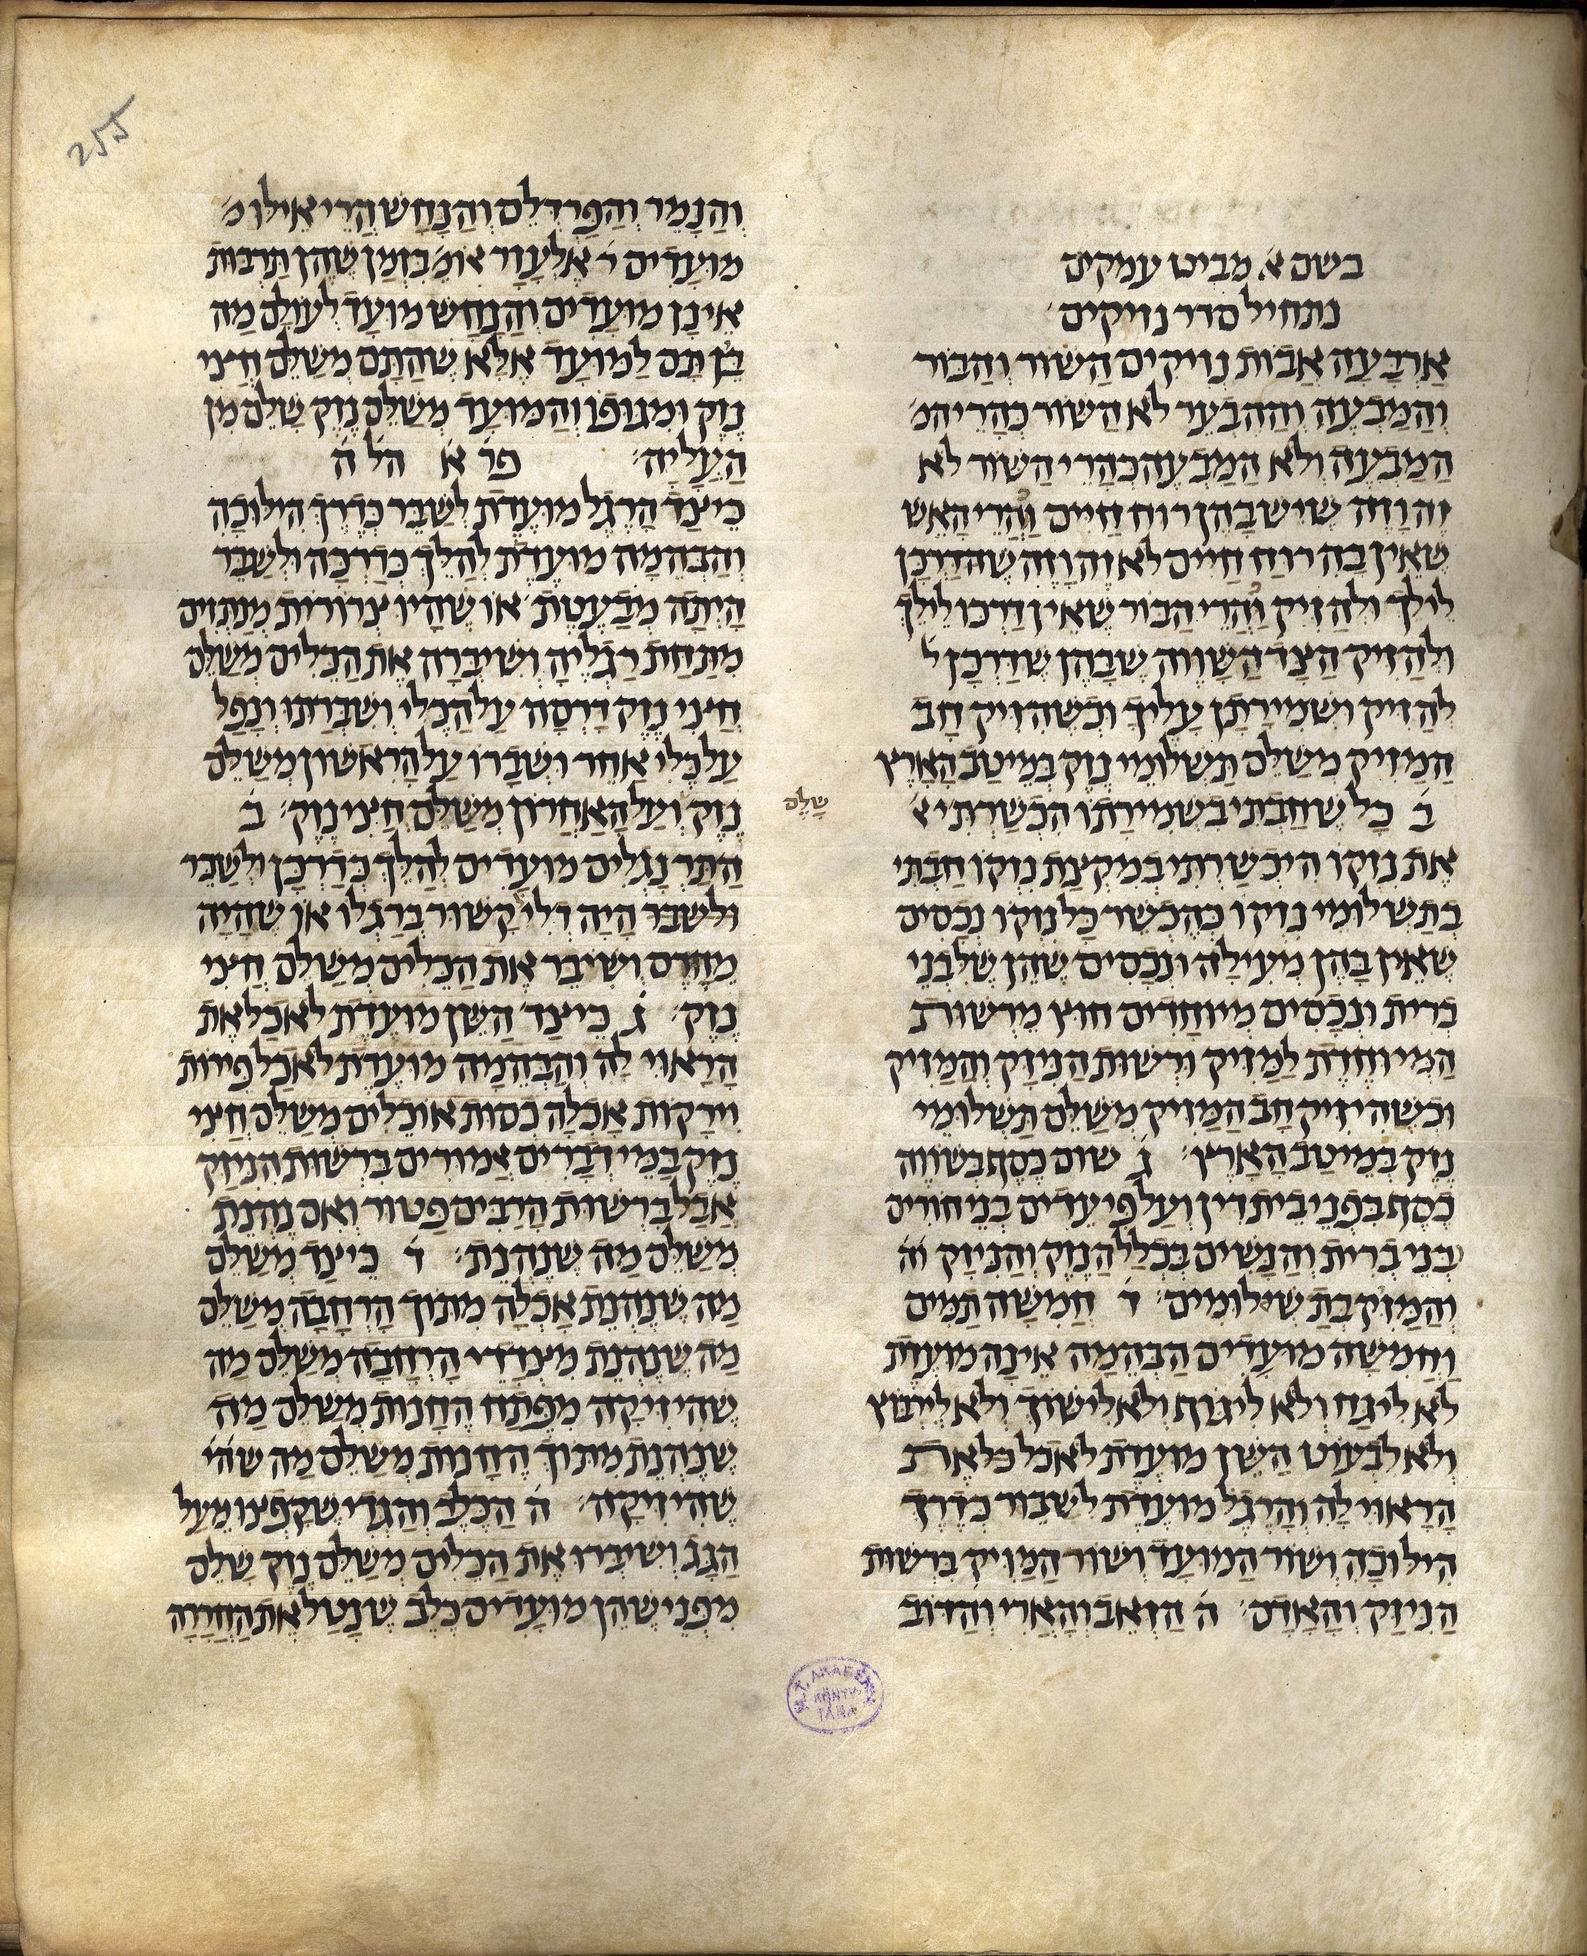 בשם א׳ מביט עמקים
נתחיל סדר נזיקים׳
אַרְבָּעָה אֲבוֹת נְזִיקִים הַשּׁוֹר וְהַבּוֹר
וְהַמַּבְעֶה וְהַהֶבְעֵר לא הַשּׁוֹר כְּהֲרֵי המ׳
הַמַּבְעֶה וְלֹא הַמַּבְעֶה כְהֲרֵי הַשּׁוֹר לא
זֶה וָזֶה שיש בָּהֶן רוח חַיִּים וַהֲרֵי הָאֵשׁ
שֶׁאֵין בָּהּ רוּחַ חַיִּים לא זֶה וָזֶה שֶׁהַדַּרְכָּן
לֵילֵךְ וּלְהַזִּיק וַהֲרֵי הַבּוֹר שֶׁאֵין דַּרְכּוֹ לֵילֵךְ
וּלְהַזִּיק הַצַּד הַשָּׁוֶוה שֶׁבָּהֶן שֶׁדַּרְכָּן ל׳
לְהַזִּיק וּשְׁמִירָתָן עָלֶיךָ וּכְשֶׁהִזִּיק חָב
הַמַּזִּיק מְשַׁלֵּם תַּשְׁלוּמֵי נֶזֶק בְּמֵיטַב הָאָרֶץ
ב׳ כָּל שֶׁחַבְתִּי בִשְׁמִירָתוֹ הִכְשַׁרְתִּי א׳
אֶת נִזְקוֹ הִיכְשַׁרְתִּי בְמִקְצָת נִזְקוֹ חַבְתִּי
בְתַשְׁלוּמֵי נִזְקוֹ כְּהֶכְשֵׁר כָּל נִזְקוֹ נְכָסִים
שֶׁאֵין בָּהֶן מְעִילָה וּנְכָסִים שֶׁהֵן שֶׁלִּבְנֵי
בְּרִית וּנְכָסִים מְיוּחָדִים חוּץ מֵרְשׁוּת
הַמְיוּחֶדֶת לַמַּזִּיק וּרְשׁוּת הַנִּיזָק וְהַמַּזִּיק
וּכְשֶׁהִיזִּיק חָב הַמַּזִּיק מְשַׁלֵּם תַּשְׁלוּמֵי
נֶזֶק בְּמֵיטַב הָאָרֶץ׳ ג׳ שׁוּם כֶּסֶף בִּשְׁוֶוה
כֶסֶף בִּפְנֵי בֵית דִּין וְעַל פִּי עֵדִים בְּנֵי חוֹרִים
בְּנֵי בְרִית וְהַנָּשִׁים בִּכְלַל הַנֶּזֶק וְהַנִּיזָק וה׳
וְהַמַּזִּק בַּתַּשְׁלוּמִים׳ ד׳ חֲמִשָּׁה תַמִּים
וַחֲמִשָּׁה מוּעָדִים הַבְּהֵמָה אֵינָהּ מוּעֶדֶת
לֹא לִיגַּח וְלֹא לִיגּוֹף וְלֹא לִישּׁוֹךְ וְלֹא לִרְבּוֹץ
וְלֹא לִבְעוֹט הַשֵּׁן מוּעֶדֶת לֶאֱכֹל כל אֶת
הָרָאוּי לָהּ וְהָרֶגֶל מוּעֶדֶת לִשְׁבּוֹר כְּדֶרֶךְ
הִילּוּכָהּ וְשׁוֹר הַמּוּעָד וְשׁוֹר הַמַּזִּיק בִּרְשׁוּת
הַנִּיזָק וְהָאָדָם׳ ה׳ הַזְּאֵב וְהָאֲרִי וְהַדּוֹב
וְהַנָּמֵר וְהַפַּרְדְּלֵס וְהַנָּחָשׁ הֲרֵי אֵילּוּ מ׳
מוּעָדִים ר׳ אֶלְעָזָר אומ׳ בִּזְמַן שֶׁהֵן תַּרְבּוּת
אֵינָן מוּעָדִים וְהַנָּחָשׁ מוּעָד לְעוֹלָם מַה
בֵּין תָּם לַמּוּעָד אֶלָּא שֶׁהַתָּם מְשַׁלֵּם חֲצִי
נֶזֶק וּמִגּוּפוֹ וְהַמּוּעָד מְשַׁלֵּם נֶזֶק שָׁלֵם מִן
הָעֲלִיָּה׳ פר׳ א׳ הל׳ ה׳
כֵּיצַד הָרֶגֶל מוּעֶדֶת לְשַׁבֵּר כְּדֶרֶךְ הִילּוּכָהּ
וְהַבְּהֵמָה מוּעֶדֶת לְהַלֵּךְ כְּדַרְכָּהּ וּלְשַׁבֵּר
הָיְתָה מְבַעֶטֶת או שֶׁהָיוּ צְרוֹרוֹת מְנַתְּזִים
מִתַּחַת רַגְלֶיהָ וְשִׁיבְּרָה אֶת הַכֵּלִים מְשַׁלֵּם
חֲצִי נֶזֶק דָּרְסָה עַל הַכְּלִי וּשְׁבָרַתּוּ וְנָפַל
עַל כְּלִי אַחֵר וּשְׁבָרוֹ עַל הָרִאשׁוֹן מְשַׁלֵּם
שָׁלֵם
נֶזֶק וְעַל הָאַחֲרוֹן מְשַׁלֵּם חֲצִי נֶזֶק׳ ב׳
הַתַּרְנְגֹלִים מוּעָדִים לְהַלֵּךְ כְּדַרְכָּן וּלְשַׁבֵּר
וּלְשַׁבֵּר הָיָה דְלִי קָשׁוּר בְּרַגְלוֹ אוֹ שֶׁהָיָה
מְהַדֵּס וְשִׁיבֵּר אֶת הַכֵּלִים מְשַׁלֵּם חֲצִי
נֶזֶק׳ ג׳ כֵּיצַד הַשֵּׁן מוּעֶדֶת לֶאֱכַל אֶת
הָרָאוּי לָהּ וְהַבְּהֵמָה מוּעֶדֶת לֶאֱכַל פֵּירוֹת
וִירָקוֹת אָכְלָה כְסוּת אוֹ כֵלִים מְשַׁלֵּם חֲצִי
נֶזֶק בַּמֵּי דְבָרִים אֲמוּרִים בִּרְשׁוּת הַנִּיזָק
אֲבָל בִּרְשׁוּת הָרַבִּים פָּטוּר וְאִם נֶהֱנֵת
מְשַׁלֵּם מַה שֶׁנֶּהֱנֵת׳ ד׳ כֵּיצַד מְשַׁלֵּם
מַה שֶּׁנֶּהֱנֵת אָכְלָה מִתּוֹךְ הָרְחָבָה מְשַׁלֵּם
מַה שֶּׁנֶּהֱנֵת מִצִּדְדֵי הָרְחָבָה מְשַׁלֵּם מַה
שֶּׁהִיזִּיקָה מִפֶּתַח הַחֲנוּת מְשַׁלֵּם מַה
שֶׁנֶּהֱנֵת מִתּוֹךְ הַחֲנוּת מְשַׁלֵּם מַה שהי׳
שֶׁהִיזִּיקָה׳ ה׳ הַכֶּלֶב וְהַגְּדִי שֶׁקָּפְצוּ מֵעַל
הַגַּג וְשִׁיבְּרוּ אֶת הַכֵּלִים מְשַׁלֵּם נֶזֶק שָׁלֵם
מִפְּנֵי שֶׁהֵן מוּעָדִים כֶּלֶב שֶׁנָּטַל אֶת הַחֲרָרָה
255
M.T. AKADÉMIA
KÖNYV
TÁRA